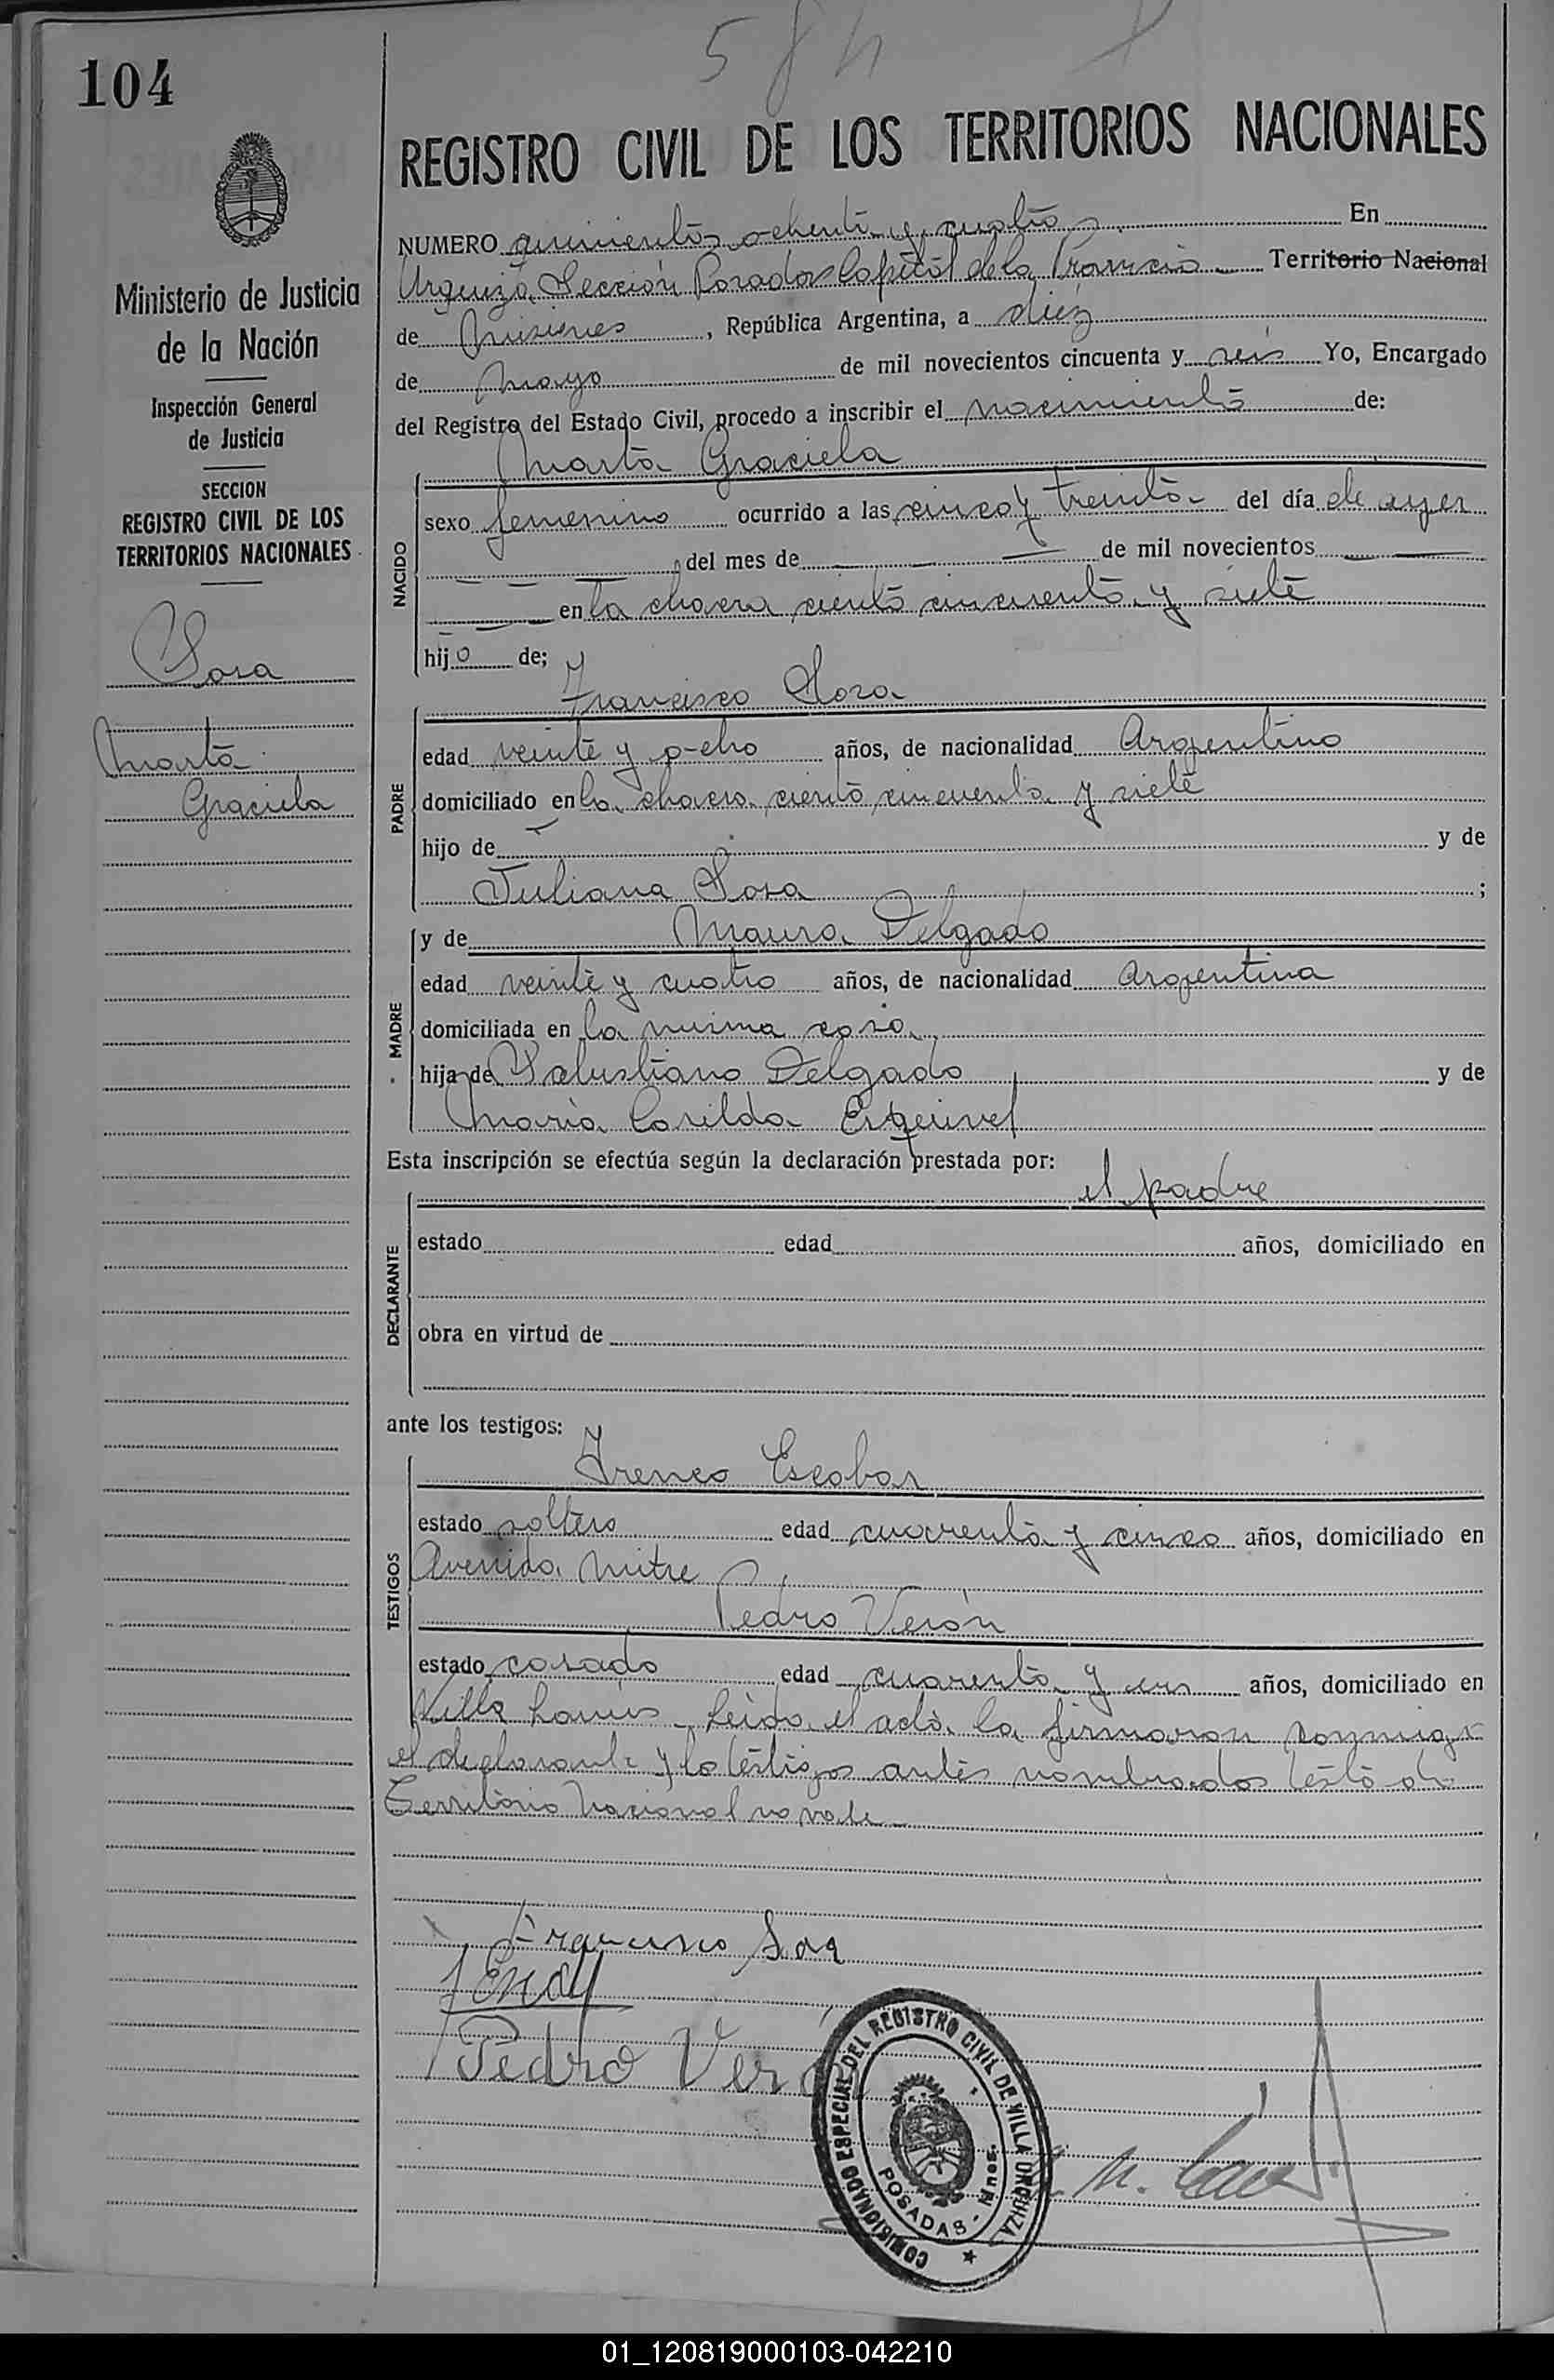 584
104
REGISTRO CIVIL DE LOS TERRITORIOS NACIONALES
Ministerio de Justicia
de la Nación
Inspección General
de Justicia
SECCION
REGISTRO CIVIL DE LOS
TERRITORIOS NACIONALES
Sosa
Marta
Graciela
NUMERO quinientos ochenta y cuatro En
Urquiza Sección Posadas Capital de la Provincia Territorio Nacional
de Misiones, República Argentina, a diez
de Mayo de mil novecientos cincuenta y seis Yo, Encargado
del Registro del Estado Civil, procedo a inscribir el nacimiento de:
Marta Graciela
NACIDO
sexo femenino ocurrido a las cinco y treinta del día de ayer
del mes de de mil novecientos
en la chacra ciento cincuenta y siete
hijo de;
Francisco Sosa
PADRE
edad veinte y ocho años, de nacionalidad Argentino
domiciliado en la chacra ciento cincuenta y siete
hijo de y de
Juliana Sosa ;
y de Maura Delgado
MADRE
edad veinte y cuatro años, de nacionalidad Argentina
domiciliada en la misma casa
hija de Salustiano Delgado y de
María Casilda Esquivel
Esta inscripción se efectúa según la declaración prestada por:
el padre
DECLARANTE
estado edad años, domiciliado en
obra en virtud de
ante los testigos:
Ireneo Escobar
TESTIGOS
estado soltero edad cuarenta y cinco años, domiciliado en
Avenida Mitre
Pedro Verón
estado casado edad cuarenta y un años, domiciliado en
Villa Lanús Leida el acta la firmaron conmigo
el declarante y lo testigos antes nombrados testado
Territorio Nacional no vale
Francisco Sosa
Pedro Verón
COMISIONADO ESPECIAL DEL REGISTRO CIVIL DE VILLA URQUIZA
POSADAS - Mnes.
01_120819000103-042210